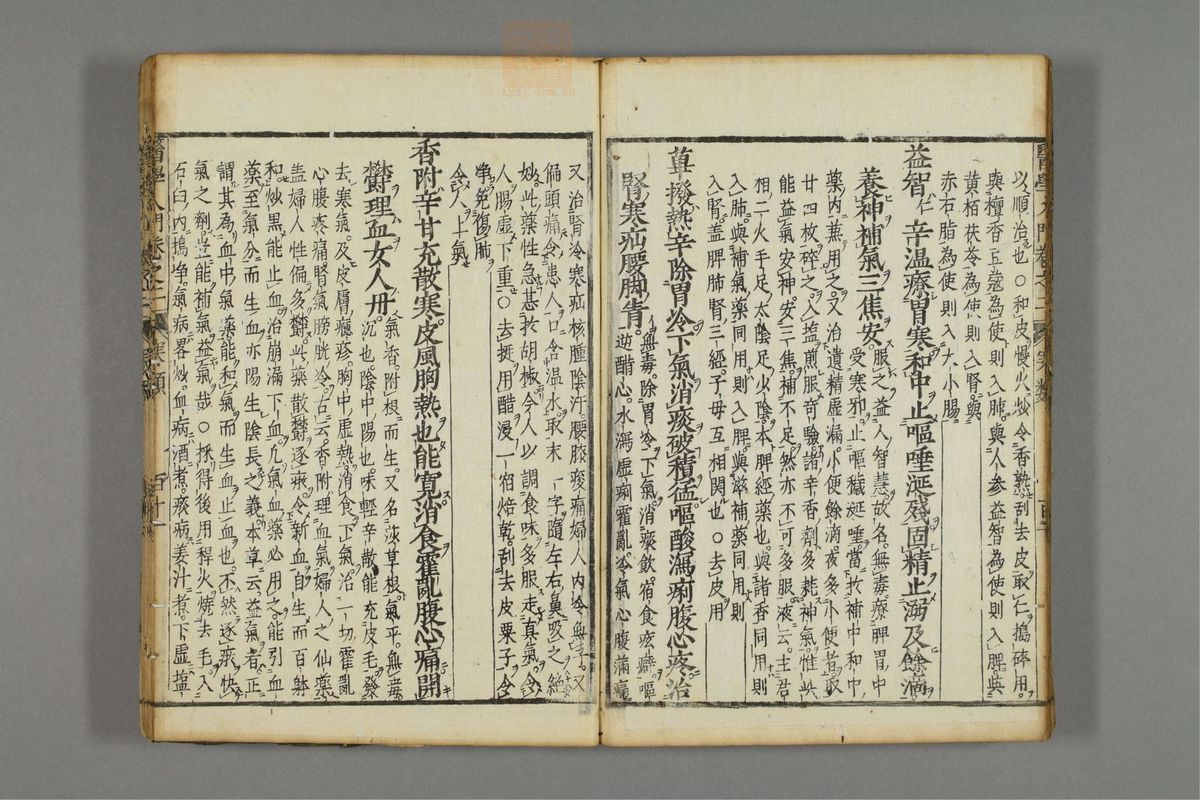 以順治也○和皮慢火炒令香熟刮去皮取仁搗碎用
與檀香豆蔻為使則入肺與人参益智為使則入脾與
黄栢茯苓為使則入腎與
赤石脂為使則入大小腸
益智仁辛温療胃寒和中止嘔唾涎殘固精止溺及餘滴
養神補氣三焦安服之益人智慧故名無毒療脾胃中
受寒邪止嘔穢涎唾當於補中和中
薬内蒸用之又治遺精虚漏小便餘滴夜多小便者取
廿四枚碎之入塩煎服竒驗諸辛香劑多耗神氣惟此
能益氣安神安三焦補不足然亦不可多服液云主君
相二火手足太陰足少陰本脾經薬也與諸香同用則
入肺與補氣薬同用則入脾與滋補薬同用則
入腎盖脾肺腎三經子毋互相関也○去皮用
蓽撥熱辛除胃冷下氣消痰破積猛嘔酸瀉痢腹心疼治
腎寒疝腰脚肯無毒除胃冷下氣消瘀飲宿食痃癖嘔
逆醋心水瀉虚痢霍亂冷氣心腹滿痛
又治腎冷寒疝核腫陰汗腰胶痠痛婦人内冷無子又
偏頭痛令患人口含温水取末一字隨左右鼻吸之絶
妙此薬性急甚於胡椒令人以調食味多服走真氣令
人腸虚下重○去挺用醋浸一宿焙乾刮去皮粟子令
浄免傷肺
令人上氣
香附辛甘充散寒皮風胸熱也能寛消食霍亂腹心痛開
欝理血女人丹氣香附根而生又名莎草根氣平無毒
沉也陰中陽也味輕辛散能充皮毛發
去寒氣及皮膚癮疹胸中虚熱消食下氣治一切霍亂
心腹疼痛腎氣膀胱冷古云香附理血氣婦人之仙薬
盖婦人性偏多欝此薬散欝逐瘀令新血自生而百躰
和炒黒能止血治崩漏下血凢氣血薬必用之能引血
薬至氣分而生血亦陽生陰長之義本草云益氣者正
謂其為血中氣薬能和氣而生血止血也不然逐瘀快
氣之劑豈能補氣益氣哉○採得後用稈火燒去毛入
石臼内搗浄氣病畧炒血病酒煮痰病姜汁煮下虚塩